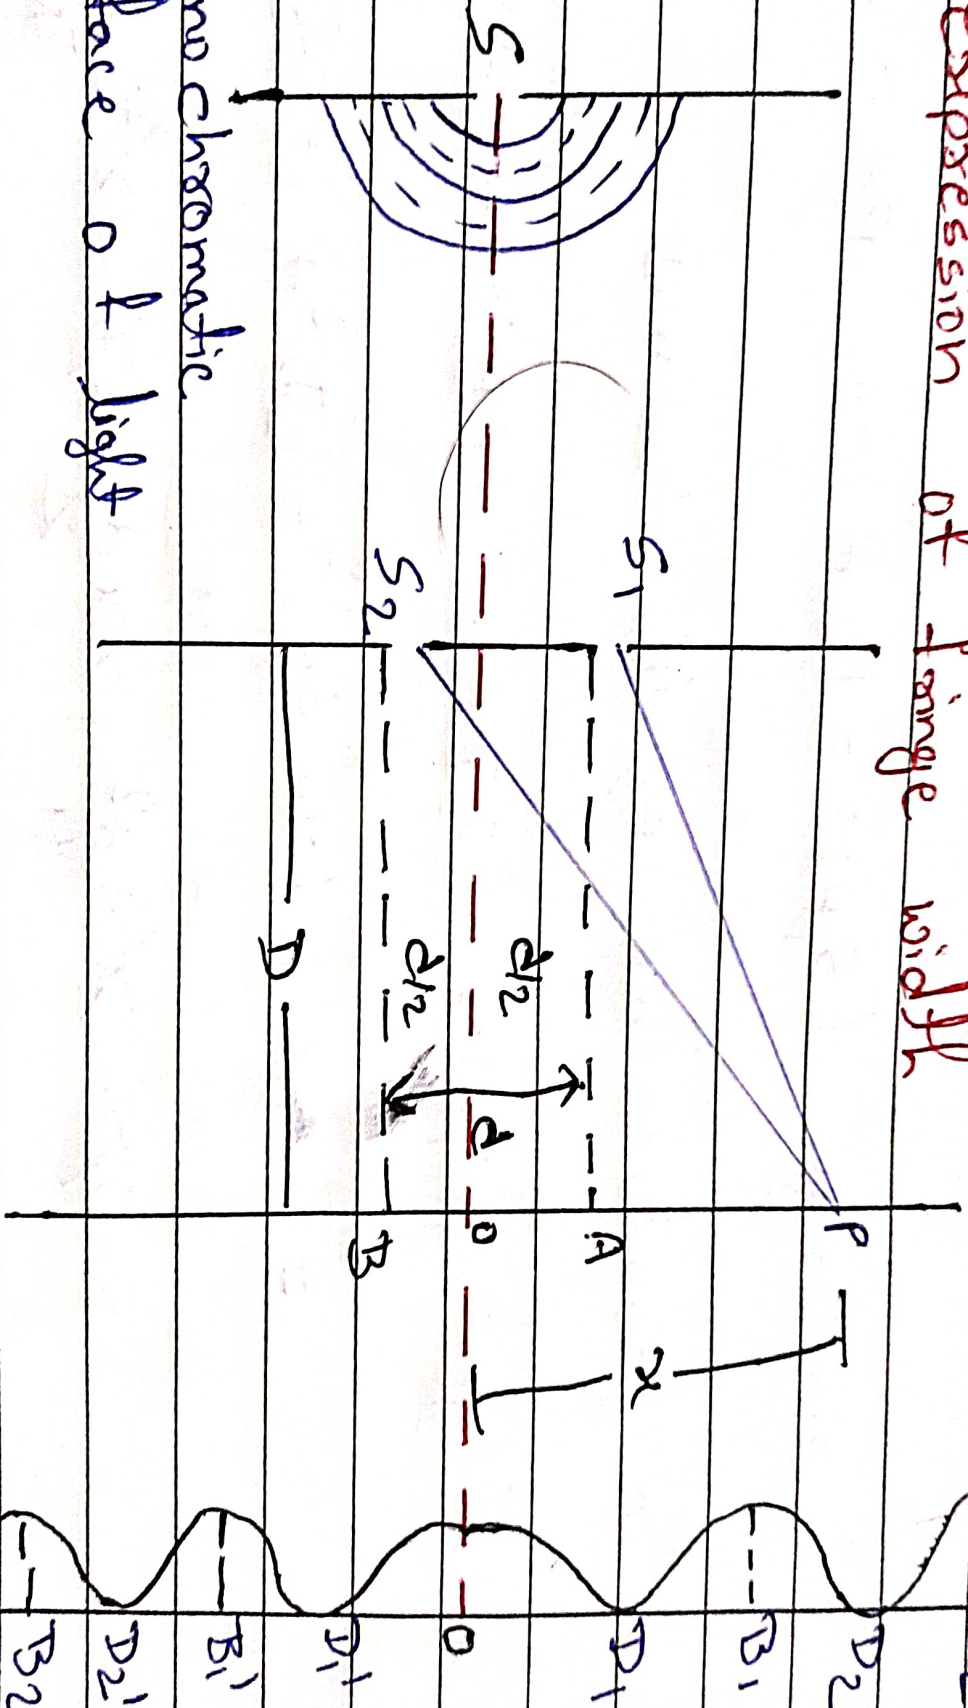 Expression of fringe width
S
S1
S2
P
A
O
B
x
d/2
d/2
d
D
D2
B1
D1
O
D1'
B1'
D2'
B2
no chromatic
face of light